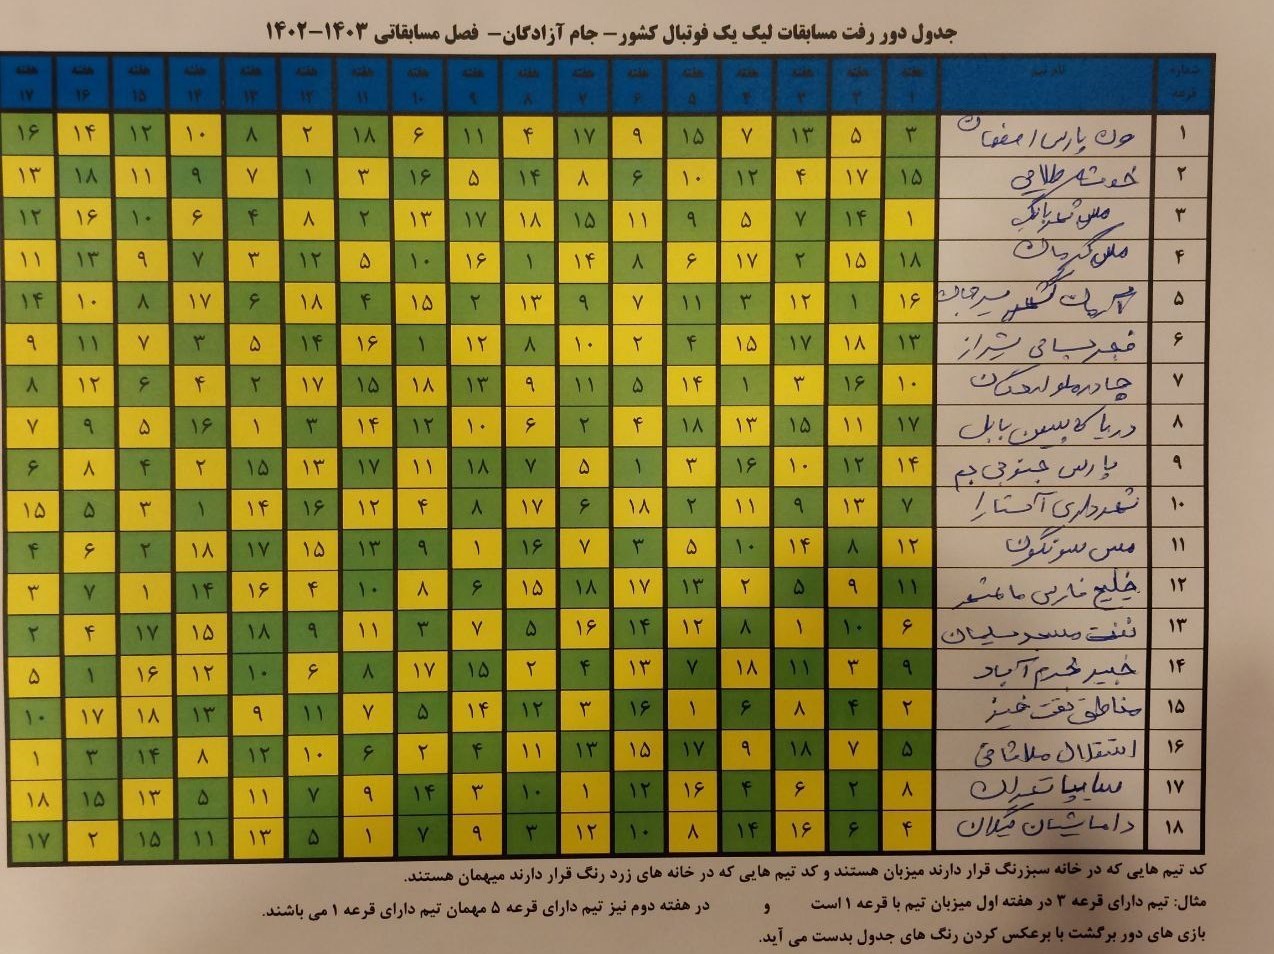 جدول دور رفت مسابقات لیگ یک فوتبال کشور- جام آزادگان- فصل مسابقاتی ۱۴۰۳-۱۴۰۲
شماره قرعه نام تیم هفته ۱ هفته ۲ هفته ۳ هفته ۴ هفته ۵ هفته ۶ هفته ۷ هفته ۸ هفته ۹ هفته ۱۰ هفته ۱۱ هفته ۱۲ هفته ۱۳ هفته ۱۴ هفته ۱۵ هفته ۱۶ هفته ۱۷
۱ پارس اصفهان ۳ ۵ ۱۳ ۷ ۱۵ ۹ ۱۷ ۴ ۱۱ ۶ ۱۸ ۲ ۸ ۱۰ ۱۲ ۱۴ ۱۶
۲ خوشه طلایی ۱۵ ۱۷ ۴ ۱۲ ۱۰ ۶ ۸ ۱۴ ۵ ۱۶ ۳ ۱ ۷ ۹ ۱۱ ۱۸ ۱۳
۳ مس شهربابک ۱ ۱۴ ۷ ۵ ۹ ۱۱ ۱۵ ۱۸ ۱۷ ۱۳ ۲ ۸ ۴ ۶ ۱۰ ۱۶ ۱۲
۴ مس کرمان ۱۸ ۱۵ ۲ ۱۷ ۶ ۸ ۱۴ ۱ ۱۶ ۱۰ ۵ ۱۲ ۳ ۷ ۹ ۱۳ ۱۱
۵ آریان گهر سیرجان ۱۶ ۱ ۱۲ ۳ ۱۱ ۷ ۹ ۱۳ ۲ ۱۵ ۴ ۱۸ ۶ ۱۷ ۸ ۱۰ ۱۴
۶ فجر سپاسی شیراز ۱۳ ۱۸ ۱۷ ۱۵ ۴ ۲ ۱۰ ۸ ۱۲ ۱ ۱۶ ۱۴ ۵ ۳ ۷ ۱۱ ۹
۷ چادرملو اردکان ۱۰ ۱۶ ۳ ۱ ۱۴ ۵ ۱۱ ۹ ۱۳ ۱۸ ۱۵ ۱۷ ۲ ۴ ۶ ۱۲ ۸
۸ دریا کاسپین بابل ۱۷ ۱۱ ۱۵ ۱۳ ۱۸ ۴ ۲ ۶ ۱۰ ۱۲ ۱۴ ۳ ۱ ۱۶ ۵ ۹ ۷
۹ پارس جنوبی جم ۱۴ ۱۲ ۱۰ ۱۶ ۳ ۱ ۵ ۷ ۱۸ ۱۱ ۱۷ ۱۳ ۱۵ ۲ ۴ ۸ ۶
۱۰ شهرداری آستارا ۷ ۱۳ ۹ ۱۱ ۲ ۱۸ ۶ ۱۷ ۸ ۴ ۱۲ ۱۶ ۱۴ ۱ ۳ ۵ ۱۵
۱۱ مس سونگون ۱۲ ۸ ۱۴ ۱۰ ۵ ۳ ۷ ۱۶ ۱ ۹ ۱۳ ۱۵ ۱۷ ۱۸ ۲ ۶ ۴
۱۲ خلیج فارس ماهشهر ۱۱ ۹ ۵ ۲ ۱۳ ۱۷ ۱۸ ۱۵ ۶ ۸ ۱۰ ۴ ۱۶ ۱۴ ۱ ۷ ۳
۱۳ نفت مسجدسلیمان ۶ ۱۰ ۱ ۸ ۱۲ ۱۴ ۱۶ ۵ ۷ ۳ ۱۱ ۹ ۱۸ ۱۵ ۱۷ ۴ ۲
۱۴ خیبر خرم آباد ۹ ۳ ۱۱ ۱۸ ۷ ۱۳ ۴ ۲ ۱۵ ۱۷ ۸ ۶ ۱۰ ۱۲ ۱۶ ۱ ۵
۱۵ مناطق نفت خیز ۲ ۴ ۸ ۶ ۱ ۱۶ ۳ ۱۲ ۱۴ ۵ ۷ ۱۱ ۹ ۱۳ ۱۸ ۱۷ ۱۰
۱۶ استقلال ملاثانی ۵ ۷ ۱۸ ۹ ۱۷ ۱۵ ۱۳ ۱۱ ۴ ۲ ۶ ۱۰ ۱۲ ۸ ۱۴ ۳ ۱
۱۷ سایپا تهران ۸ ۲ ۶ ۴ ۱۶ ۱۲ ۱ ۱۰ ۳ ۱۴ ۹ ۷ ۱۱ ۵ ۱۳ ۱۵ ۱۸
۱۸ داماشیان گیلان ۴ ۶ ۱۶ ۱۴ ۸ ۱۰ ۱۲ ۳ ۹ ۷ ۱ ۵ ۱۳ ۱۱ ۱۵ ۲ ۱۷
کد تیم هایی که در خانه سبزرنگ قرار دارند میزبان هستند و کد تیم هایی که در خانه های زرد رنگ قرار دارند میهمان هستند.
مثال: تیم دارای قرعه ۳ در هفته اول میزبان تیم با قرعه ۱ است و در هفته دوم نیز تیم دارای قرعه ۵ مهمان تیم دارای قرعه ۱ می باشند.
بازی های دور برگشت با برعکس کردن رنگ های جدول بدست می آید.